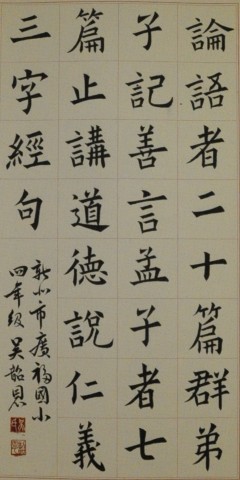 論語者二十篇群弟
子記善言孟子者七
篇止講道德說仁義
三字經句
新北市廣福國小
四年級吳韶恩